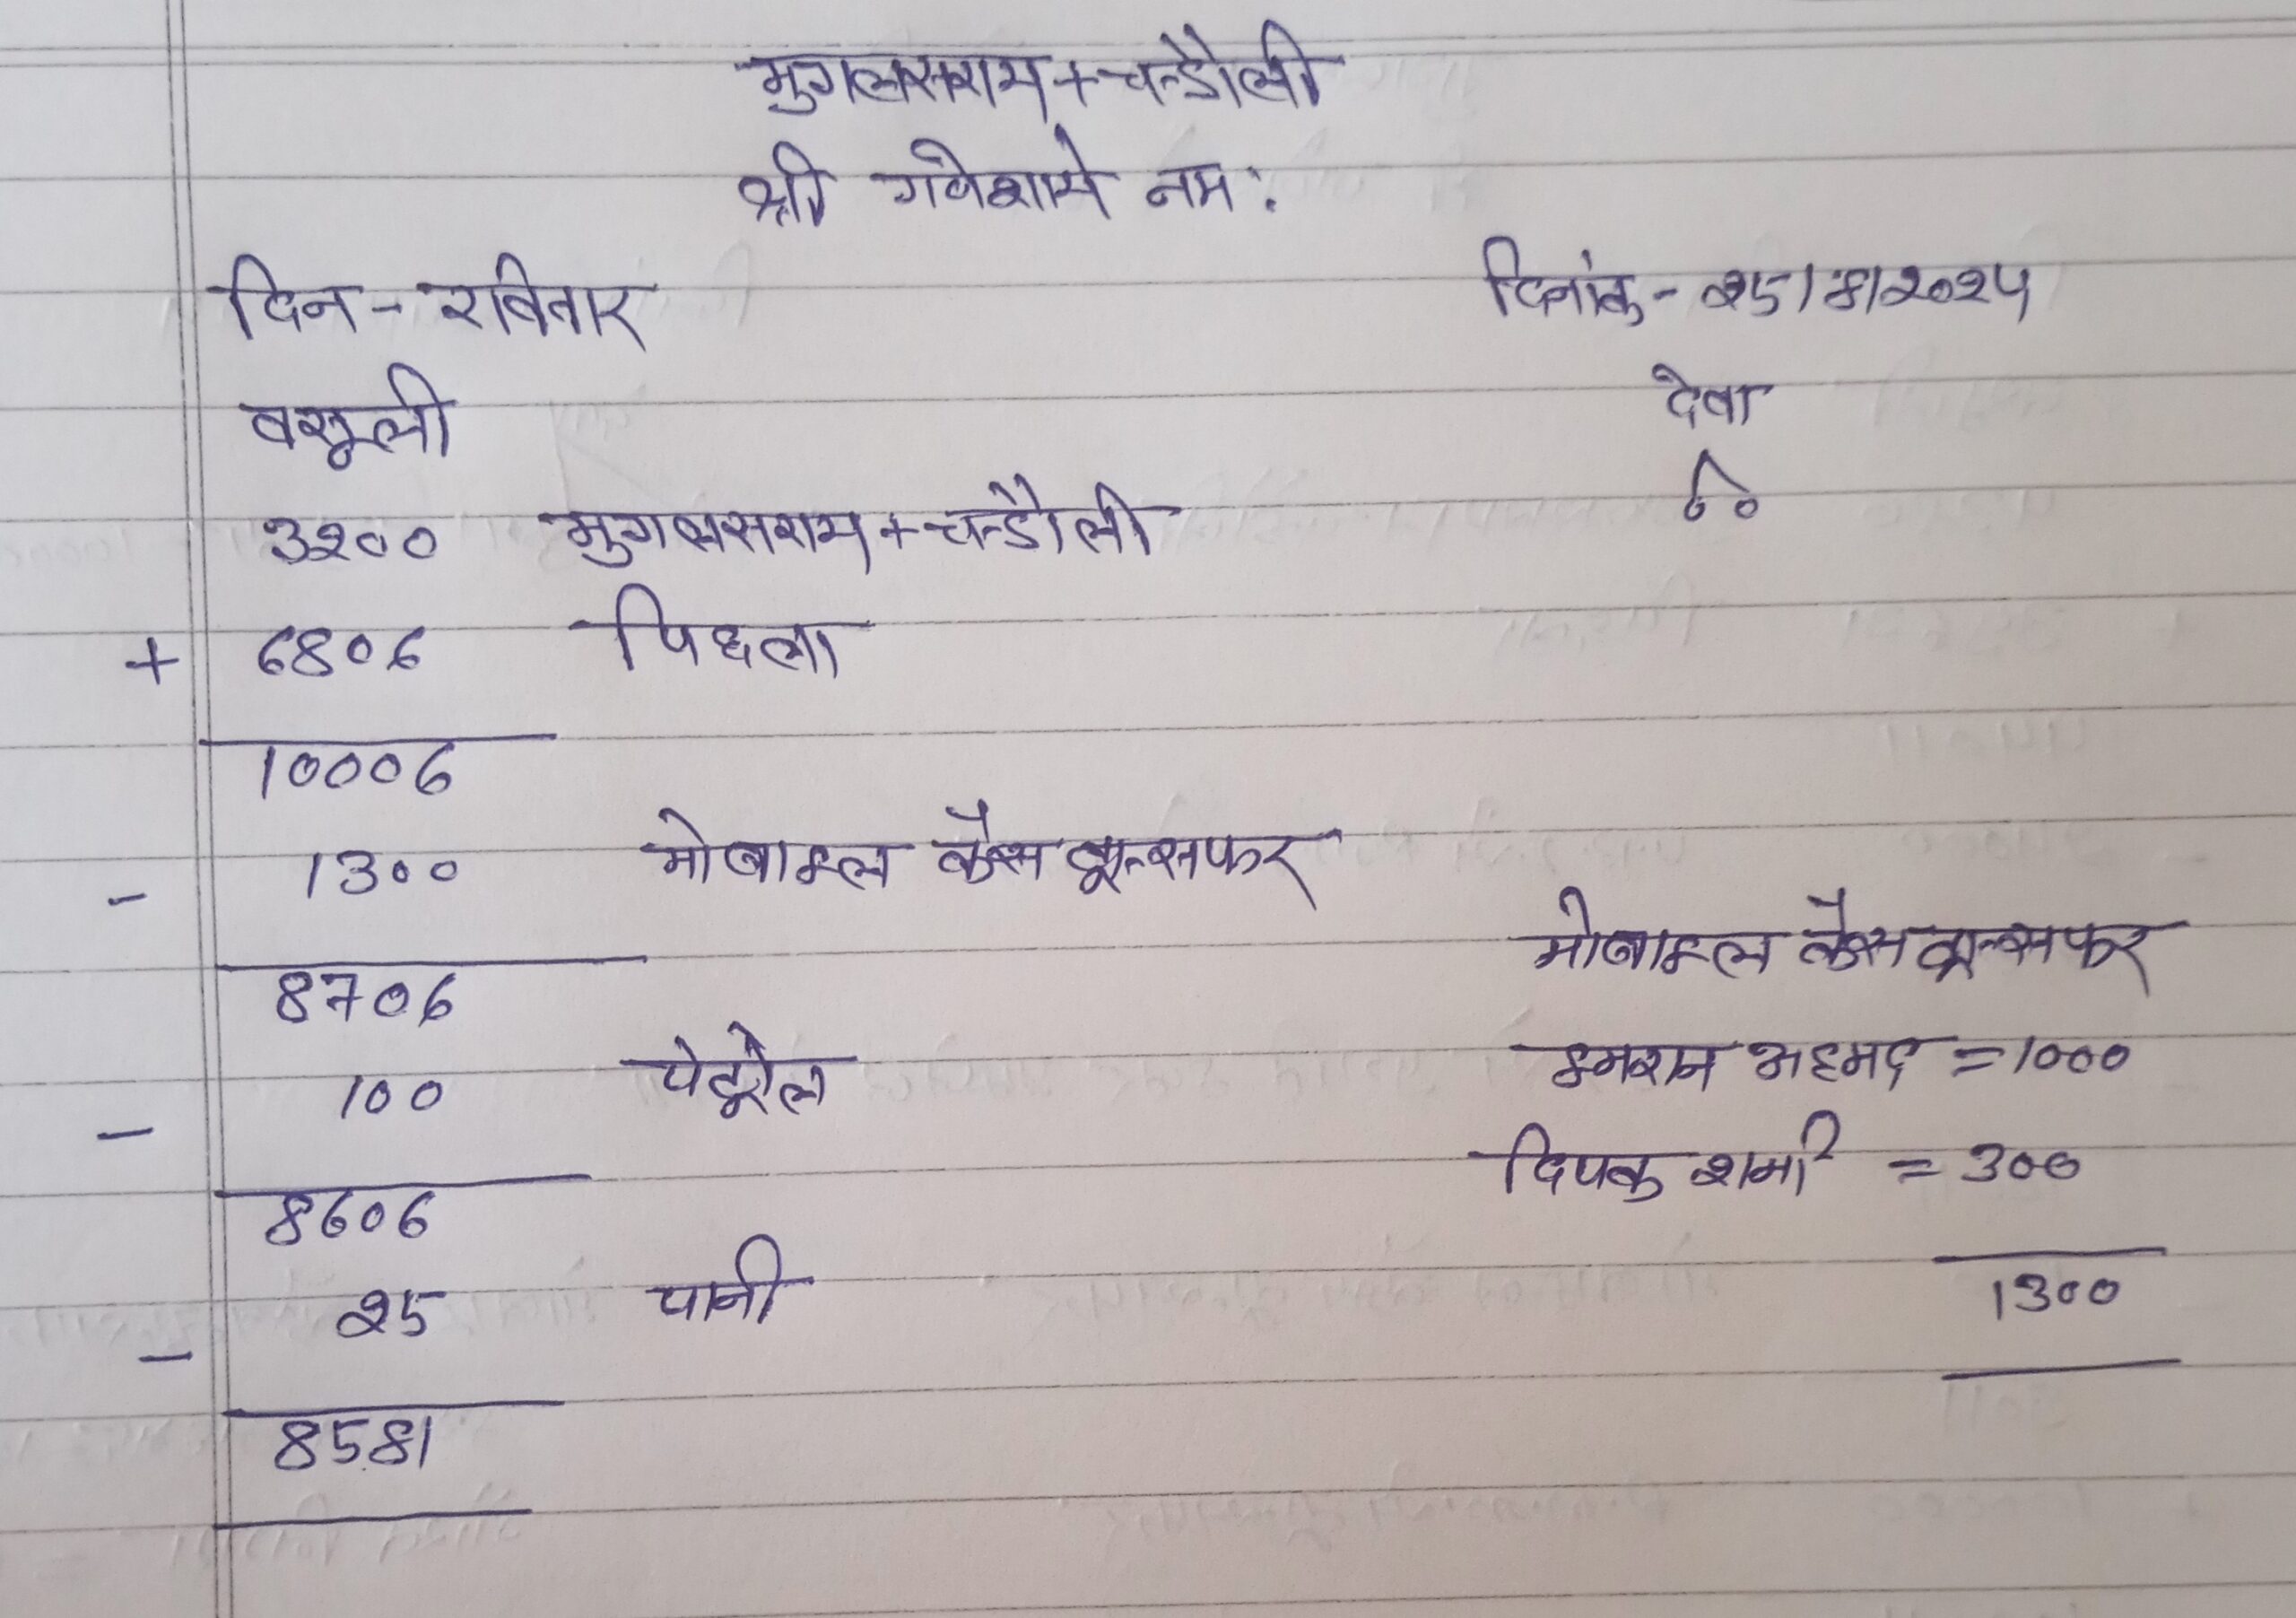 मुगलसराय + चन्डौली
श्री गणेशाये नम:
दिन - रविवार
दिनांक - 25/8/2024
वसूली
देवा
3200 मुगलसराय + चन्डौली
+ 6806 पिछला
10006
- 1300 मोबाइल कैस ट्रान्सफर
8706
मोबाइल कैस ट्रान्सफर
- 100 पेट्रोल
इमरान अहमद = 1000
8606
दिपक शर्मा = 300
- 25 पानी
1300
8581